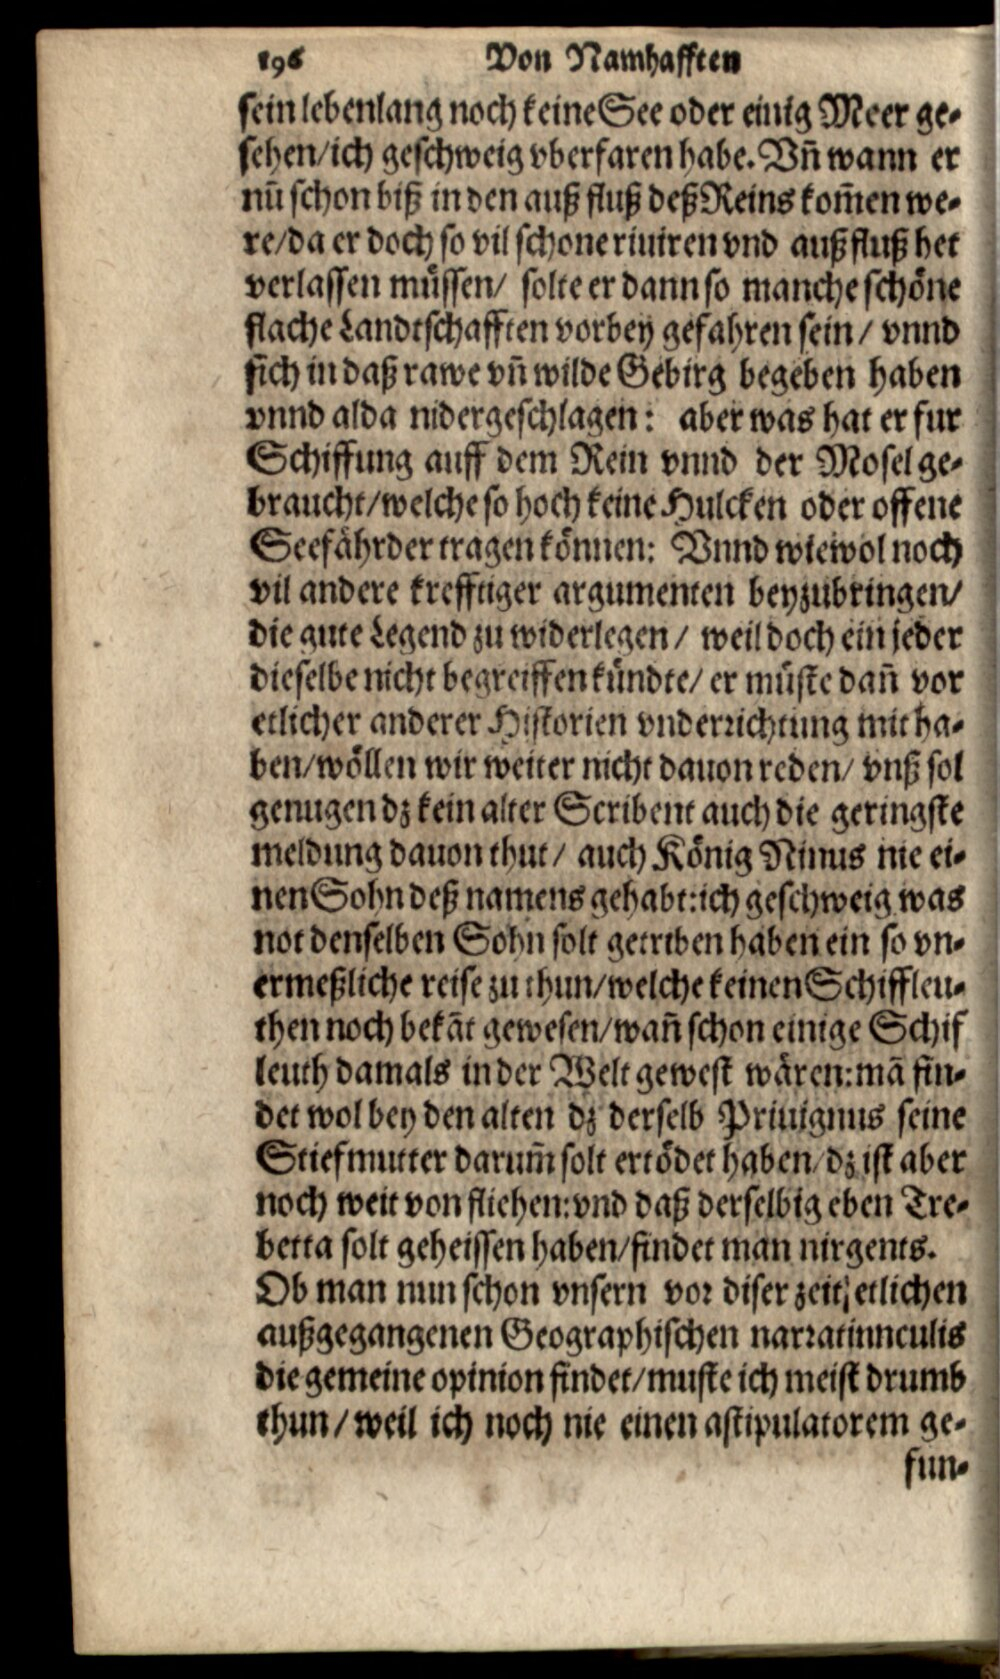 196 Von Namhafften
sein lebenlang noch keine See oder einig Meer ge-
sehen/ich geschweig vberfaren habe. Vñ wann er
nũ schon biß in den auß fluß deß Reins kom̃en we-
re/da er doch so vil schone riuiren vnd außfluß het
verlassen müssen/ solte er dann so manche schöne
flache Landtschafften vorbey gefahren sein/ vnnd
sich in daß rawe vñ wilde Gebirg begeben haben
vnnd alda nidergeschlagen: aber was hat er fur
Schiffung auff dem Rein vnnd der Mosel ge-
braucht/welche so hoch keine Hulcken oder offene
Seefährder tragen können: Vnnd wiewol noch
vil andere krefftiger argumenten beyzubringen/
die gute Legend zu widerlegen/ weil doch ein jeder
dieselbe nicht begreiffen kündte/ er müste dañ vor
etlicher anderer Historien vnderrichtung mit ha-
ben/wöllen wir weiter nicht dauon reden/ vnß sol
genugen dz kein alter Scribent auch die geringste
meldung dauon thut/ auch König Ninus nie ei-
nen Sohn deß namens gehabt: ich geschweig was
not denselben Sohn solt getriben haben ein so vn-
ermeßliche reise zu thun/welche keinen Schiffleu-
then noch bekãt gewesen/wañ schon einige Schif
leuth damals in der Welt gewest wären: mã fin-
det wol bey den alten dz derselb Priuignus seine
Stiefmutter darum̃ solt ertödet haben/dz ist aber
noch weit von fliehen: vnd daß derselbig eben Tre-
betta solt geheissen haben/findet man nirgents.
Ob man nun schon vnsern vor diser zeit/ etlichen
außgegangenen Geographischen narratiunculis
die gemeine opinion findet/muste ich meist drumb
thun/weil ich noch nie einen astipulatorem ge-
fun-